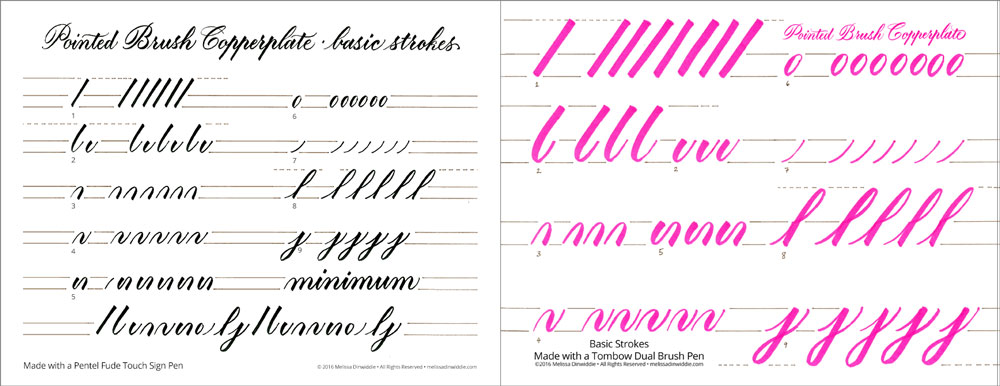 Pointed Brush Copperplate · basic strokes
1
6
2
7
3
8
4
9
5
minimum
Made with a Pentel Fude Touch Sign Pen
© 2016 Melissa Dinwiddie • All Rights Reserved • melissadinwiddie.com
Pointed Brush Copperplate
1
2
2
7
3
5
8
4
9
Basic Strokes
Made with a Tombow Dual Brush Pen
©2016 Melissa Dinwiddie • All Rights Reserved • melissadinwiddie.com